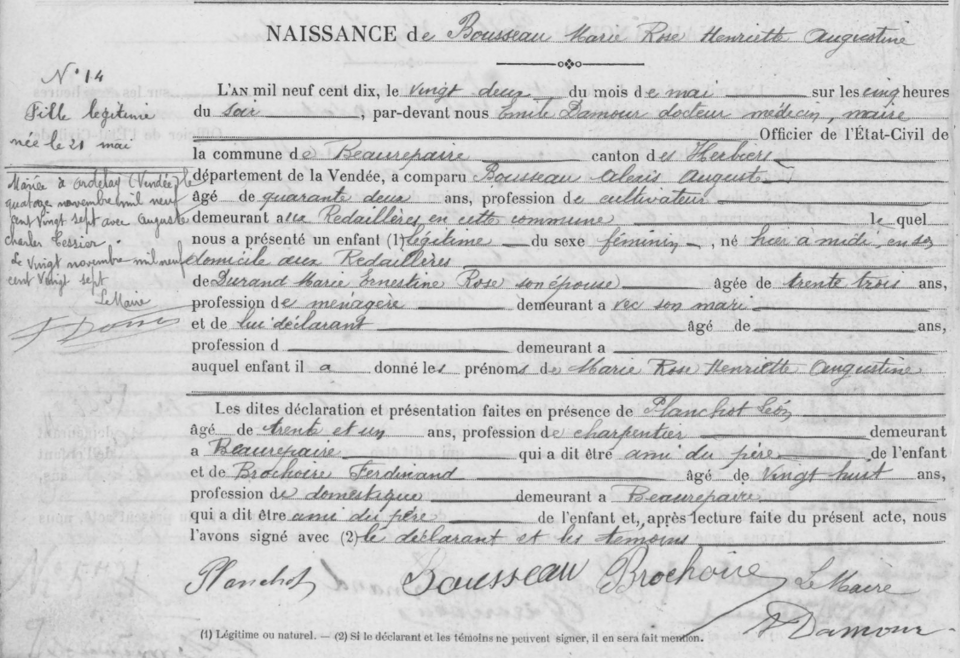 NAISSANCE de Bousseau Marie Rose Henriette Augustine
N° 14
Fille légitime
née le 21 mai
Mariée à Ardelay (Vendée) le
quatorze novembre mil neuf
cent vingt sept avec Auguste
Charles Tessier.
Le vingt novembre mil neuf
cent vingt sept
Le Maire
L'AN mil neuf cent dix, le vingt deux du mois de mai sur les cinq heures
du soir, par-devant nous Emile Damour docteur médecin, maire
Officier de l'État-Civil de
la commune de Beaurepaire canton des Herbiers
département de la Vendée, a comparu Bousseau Alexis Auguste
âgé de quarante deux ans, profession de cultivateur
demeurant aux Redaillères en cette commune lequel
nous a présenté un enfant (1) légitime du sexe féminin, né hier à midi, en son
domicile aux Redaillères
de Durand Marie Ernestine Rose son épouse âgée de trente trois ans,
profession de ménagère demeurant avec son mari
et de lui déclarant âgé de ans,
profession d demeurant a
auquel enfant il a donné les prénoms de Marie Rose Henriette Augustine
Les dites déclaration et présentation faites en présence de Planchot Léon
âgé de trente et un ans, profession de charpentier demeurant
a Beaurepaire qui a dit être ami du père de l'enfant
et de Brochoire Ferdinand âgé de vingt huit ans,
profession de domestique demeurant a Beaurepaire
qui a dit être ami du père de l'enfant et, après lecture faite du présent acte, nous
l'avons signé avec (2) le déclarant et les témoins
Planchot Bousseau Brochoire Le Maire
Damour
(1) Légitime ou naturel. — (2) Si le déclarant et les témoins ne peuvent signer, il en sera fait mention.